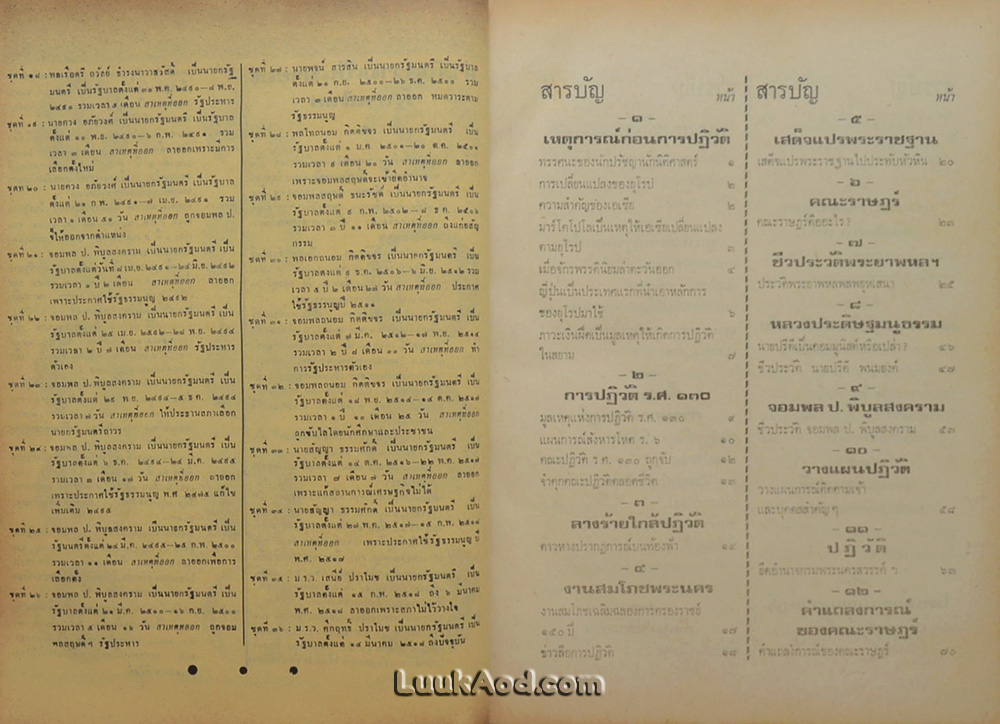 ชุดที่ ๑๘ : พลเรือตรี ถวัลย์ ธำรงนาวาสวัสดิ์ เป็นนายกรัฐ
มนตรี เป็นรัฐบาลตั้งแต่ ๓๐ พ.ค. ๒๔๙๐–๘ พ.ย.
๒๔๙๐ รวมเวลา ๕ เดือน สาเหตุที่ออก รัฐประหาร
ชุดที่ ๑๙ : นายควง อภัยวงศ์ เป็นนายกรัฐมนตรี เป็นรัฐบาล
ตั้งแต่ ๑๐ พ.ย. ๒๔๙๐–๖ ก.พ. ๒๔๙๑ รวม
เวลา ๓ เดือน สาเหตุที่ออก ลาออกเพราะมีการ
เลือกตั้งใหม่
ชุดที่ ๒๐ : นายควง อภัยวงศ์ เป็นนายกรัฐมนตรี เป็นรัฐบาล
ตั้งแต่ ๒๑ ก.พ. ๒๔๙๑–๗ เม.ย. ๒๔๙๑ รวม
เวลา ๑ เดือน ๑๖ วัน สาเหตุที่ออก ถูกจอมพล ป.
จี้ให้ออกจากตำแหน่ง
ชุดที่ ๒๑ : จอมพล ป. พิบูลสงคราม เป็นนายกรัฐมนตรี เป็น
รัฐบาลตั้งแต่วันที่ ๘ เม.ย. ๒๔๙๑–๒๔ มิ.ย. ๒๔๙๒
รวมเวลา ๑ ปี ๒ เดือน สาเหตุที่ออก ลาออก
เพราะประกาศใช้รัฐธรรมนูญ ๒๔๙๒
ชุดที่ ๒๒ : จอมพล ป. พิบูลสงคราม เป็นนายกรัฐมนตรี เป็น
รัฐบาลตั้งแต่ ๒๕ มิ.ย. ๒๔๙๒–๒๙ พ.ย. ๒๔๙๔
รวมเวลา ๒ ปี ๕ เดือน สาเหตุที่ออก รัฐประหาร
ตัวเอง
ชุดที่ ๒๓ : จอมพล ป. พิบูลสงคราม เป็นนายกรัฐมนตรี เป็น
รัฐบาลตั้งแต่ ๒๙ พ.ย. ๒๔๙๔–๕ ธ.ค. ๒๔๙๔
รวมเวลา ๗ วัน สาเหตุที่ออก ให้ประธานสภาเลือก
นายกรัฐมนตรีถาวร
ชุดที่ ๒๔ : จอมพล ป. พิบูลสงคราม เป็นนายกรัฐมนตรี เป็น
รัฐบาลตั้งแต่ ๖ ธ.ค. ๒๔๙๔–๒๔ มี.ค. ๒๔๙๕
รวมเวลา ๓ เดือน ๑๗ วัน สาเหตุที่ออก ลาออก
เพราะประกาศใช้รัฐธรรมนูญ พ.ศ ๒๔๗๕ แก้ไข
เพิ่มเติม ๒๔๙๕
ชุดที่ ๒๕ : จอมพล ป. พิบูลสงคราม เป็นนายกรัฐมนตรี เป็น
รัฐมนตรีตั้งแต่ ๒๔ มี.ค. ๒๔๙๕–๒๕ ก.พ. ๒๕๐๐
รวมเวลา ๑๑ เดือน สาเหตุที่ออก ลาออกเพื่อการ
เลือกตั้ง
ชุดที่ ๒๖ : จอมพล ป. พิบูลสงคราม เป็นนายกรัฐมนตรี เป็น
รัฐบาลตั้งแต่ ๒๑ มี.ค. ๒๕๐๐–๑๖ ก.ย. ๒๕๐๐
รวมเวลา ๕ เดือน ๑๖ วัน สาเหตุที่ออก ถูกจอม
พลสฤษดิ์ฯ รัฐประหาร
ชุดที่ ๒๗ : นายพจน์ สารสิน เป็นนายกรัฐมนตรี เป็นรัฐบาล
ตั้งแต่ ๒๑ ก.ย. ๒๕๐๐–๒๖ ธ.ค. ๒๕๐๐ รวม
เวลา ๓ เดือน สาเหตุที่ออก ลาออก หมดวาระตาม
รัฐธรรมนูญ
ชุดที่ ๒๘ : พลโทถนอม กิตติขจร เป็นนายกรัฐมนตรี เป็น
รัฐบาลตั้งแต่ ๑ ม.ค ๒๕๐๑–๒๐ ต.ค. ๒๕๐๑
รวมเวลา ๙ เดือน ๒๐ วัน สาเหตุที่ออก ลาออก
เพราะจอมพลสฤษดิ์จะเข้ายึดอำนาจ
ชุดที่ ๒๙ : จอมพลสฤษดิ์ ธนะรัชต์ เป็นนายกรัฐมนตรี เป็น
รัฐบาลตั้งแต่ ๙ ก.พ. ๒๕๐๒–๘ ธ.ค ๒๕๐๖
รวมเวลา ๓ ปี ๑๑ เดือน สาเหตุที่ออก ถึงแก่อสัญ
กรรม
ชุดที่ ๓๐ : พลเอกถนอม กิตติขจร เป็นนายกรัฐมนตรี เป็น
รัฐบาลตั้งแต่ ๙ ธ.ค. ๒๕๐๖–๖ มิ.ย. ๒๕๑๒ รวม
เวลา ๕ ปี ๒ เดือน ๒๗ วัน สาเหตุที่ออก ประกาศ
ใช้รัฐธรรมนูญปี ๒๕๑๑
ชุดที่ ๓๑ : จอมพลถนอม กิตติขจร เป็นนายกรัฐมนตรี เป็น
รัฐบาลตั้งแต่ ๗ มี.ค. ๒๕๑๒–๑๗ พ.ย. ๒๕๑๔
รวมเวลา ๒ ปี ๘ เดือน ๑๐ วัน สาเหตุที่ออก ทำ
การรัฐประหารตัวเอง
ชุดที่ ๓๒ : จอมพลถนอม กิตติขจร เป็นนายกรัฐมนตรี เป็น
รัฐบาลตั้งแต่ ๑๘ พ.ย. ๒๕๑๔–๑๔ ต.ค. ๒๕๑๖
รวมเวลา ๑ ปี ๑๐ เดือน ๒๕ วัน สาเหตุที่ออก
ถูกขับไล่โดยนักศึกษาและประชาชน
ชุดที่ ๓๓ : นายสัญญา ธรรมศักดิ์ เป็นนายกรัฐมนตรี เป็น
รัฐบาลตั้งแต่ ๑๔ ต.ค. ๒๕๑๖–๒๒ พ.ค. ๒๕๑๗
รวมเวลา ๗ เดือน ๗ วัน สาเหตุที่ออก ลาออก
เพราะแก้สถานการณ์เศรษฐกิจไม่ได้
ชุดที่ ๓๔ : นายสัญญา ธรรมศักดิ์ เป็นนายกรัฐมนตรี เป็น
รัฐบาลตั้งแต่ ๒๗ พ.ค. ๒๕๑๗–๑๕ ก.พ. ๒๕๑๘
สาเหตุที่ออก เพราะประกาศใช้รัฐธรรมนูญ ปี
พ.ศ. ๒๕๑๗
ชุดที่ ๓๕ : ม.ร.ว. เสนีย์ ปราโมช เป็นนายกรัฐมนตรี เป็น
รัฐบาลตั้งแต่ ๑๕ ก.พ. ๒๕๑๘ ถึง ๖ มีนาคม
พ.ศ. ๒๕๑๘ ลาออกเพราะสภาไม่ไว้วางใจ
ชุดที่ ๓๖ : ม.ร.ว. คึกฤทธิ์ ปราโมช เป็นนายกรัฐมนตรี เป็น
รัฐบาลตั้งแต่ ๑๔ มีนาคม ๒๕๑๘ ถึงปัจจุบัน
สารบัญ
หน้า
– ๑ –
เหตุการณ์ก่อนการปฏิวัติ
ทรรศนะของนักปรัชญานักนิติศาสตร์ ๑
การเปลี่ยนแปลงของยุโรป ๒
ความสำคัญของเอเซีย ๒
มาร์โคโปโลเป็นเหตุให้เอเซียเปลี่ยนแปลง
ตามยุโรป ๓
เมื่อจักรพรรดินิยมล่าตะวันออก ๔
ญี่ปุ่นเป็นประเทศแรกที่นำเอาหลักการ
ของยุโรปมาใช้ ๖
ภาวะเงินฝืดเป็นมูลเหตุให้เกิดการปฏิวัติ
ในสยาม ๗
– ๒ –
การปฏิวัติ ร.ศ. ๑๓๐
มูลเหตุแห่งการปฏิวัติ ร.ศ. ๑๓๐ ๙
แผนการสังหารโหด ร. ๖ ๑๐
คณะปฏิวัติ ร.ศ. ๑๓๐ ถูกจับ ๑๒
จำคุกคณะปฏิวัติตลอดชีวิต ๑๓
– ๓ –
ลางร้ายใกล้ปฏิวัติ
ดาวหางปรากฏการณ์บนท้องฟ้า ๑๔
– ๔ –
งานสมโภชพระนคร
งานสมโภชเฉลิมฉลองการครองราชย์
๑๕๐ ปี ๑๗
ข่าวลือการปฏิวัติ ๑๘
สารบัญ
หน้า
– ๕ –
เสด็จแปรพระราชฐาน
เสด็จแปรพระราชฐานไปประทับหัวหิน ๒๐
– ๖ –
คณะราษฎร์
คณะราษฎร์คืออะไร? ๒๓
– ๗ –
ชีวประวัติพระยาพหลฯ
ประวัติพระยาพหลพลพยุหเสนา ๒๕
– ๘ –
หลวงประดิษฐมนูธรรม
นายปรีดีเป็นคอมมูนิสต์หรือเปล่า? ๔๖
ชีวประวัติ นายปรีดี พนมยงค์ ๔๗
– ๙ –
จอมพล ป. พิบูลสงคราม
ชีวประวัติ จอมพล ป. พิบูลสงคราม ๕๓
– ๑๐ –
วางแผนปฏิวัติ
วางแผนการณ์ติดตามเจ้า
และบุคคลสำคัญๆ ๕๘
– ๑๑ –
ปฏิวัติ
ยึดอำนาจกรมพระนครสวรรค์ ฯ ๖๓
– ๑๒ –
คำแถลงการณ์
ของคณะราษฎร์
คำแถลงการณ์ของคณะราษฎร์ ๗๐
LuukAod.com